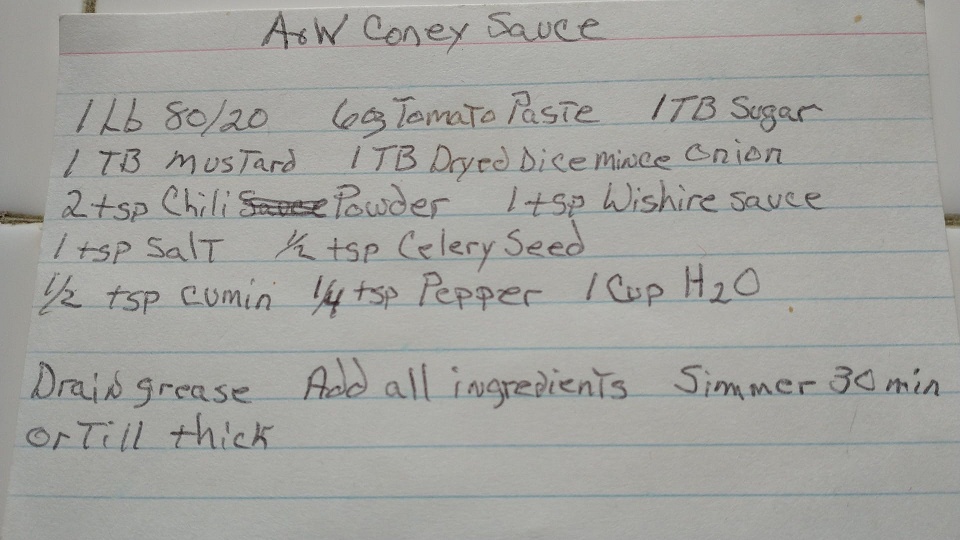 A&W Coney Sauce
1 Lb 80/20 6oz Tomato Paste 1 TB Sugar
1 TB Mustard 1 TB Dryed Dice mince Onion
2 tsp Chili Powder 1 tsp Wishire sauce
1 tsp Salt ½ tsp Celery Seed
½ tsp cumin ¼ tsp Pepper 1 Cup H2O
Drain grease Add all ingredients Simmer 30 min
or Till thick